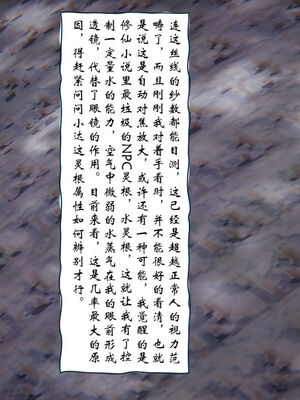 连这丝线的纱数都能目测，这已经是超越正常人的视力范
畴了，而且刚刚我对着手看时，并不能很好的看清，也就
是说这是自动对焦放大，或许还有一种可能，我觉醒的是
修仙小说里最垃圾的NPC灵根，水灵根，这就让我有了控
制一定量水的能力，空气中微弱的水蒸气在我的眼前形成
透镜，代替了眼镜的作用。目前来看，这是几率最大的原
因，得赶紧问问小达这灵根属性如何辨别才行。